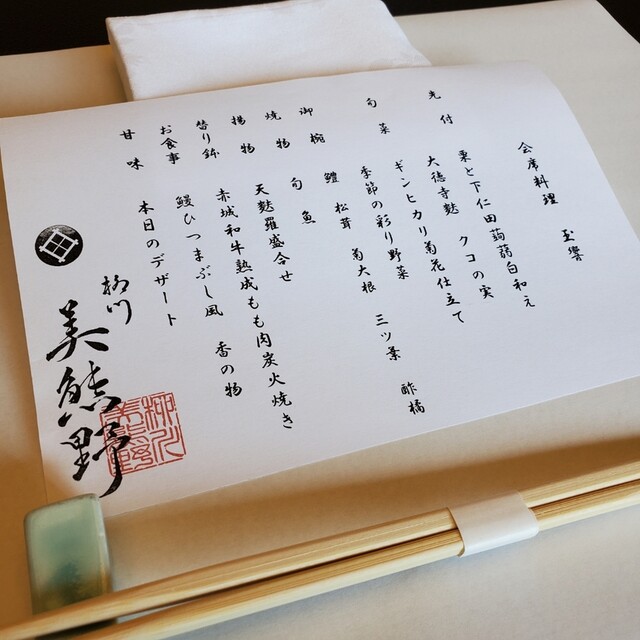 会席料理　玉響
先付　栗と下仁田蒟蒻白和え
大徳寺麩　クコの実
旬菜　ギンヒカリ菊花仕立て
季節の彩り野菜
御椀　鱧　松茸　菊大根　三ツ葉　酢橘
焼物　旬魚
揚物　天麩羅盛合せ
替り鉢　赤城和牛熟成もも肉炭火焼き
お食事　鰻ひつまぶし風　香の物
甘味　本日のデザート
柳川
美熊野